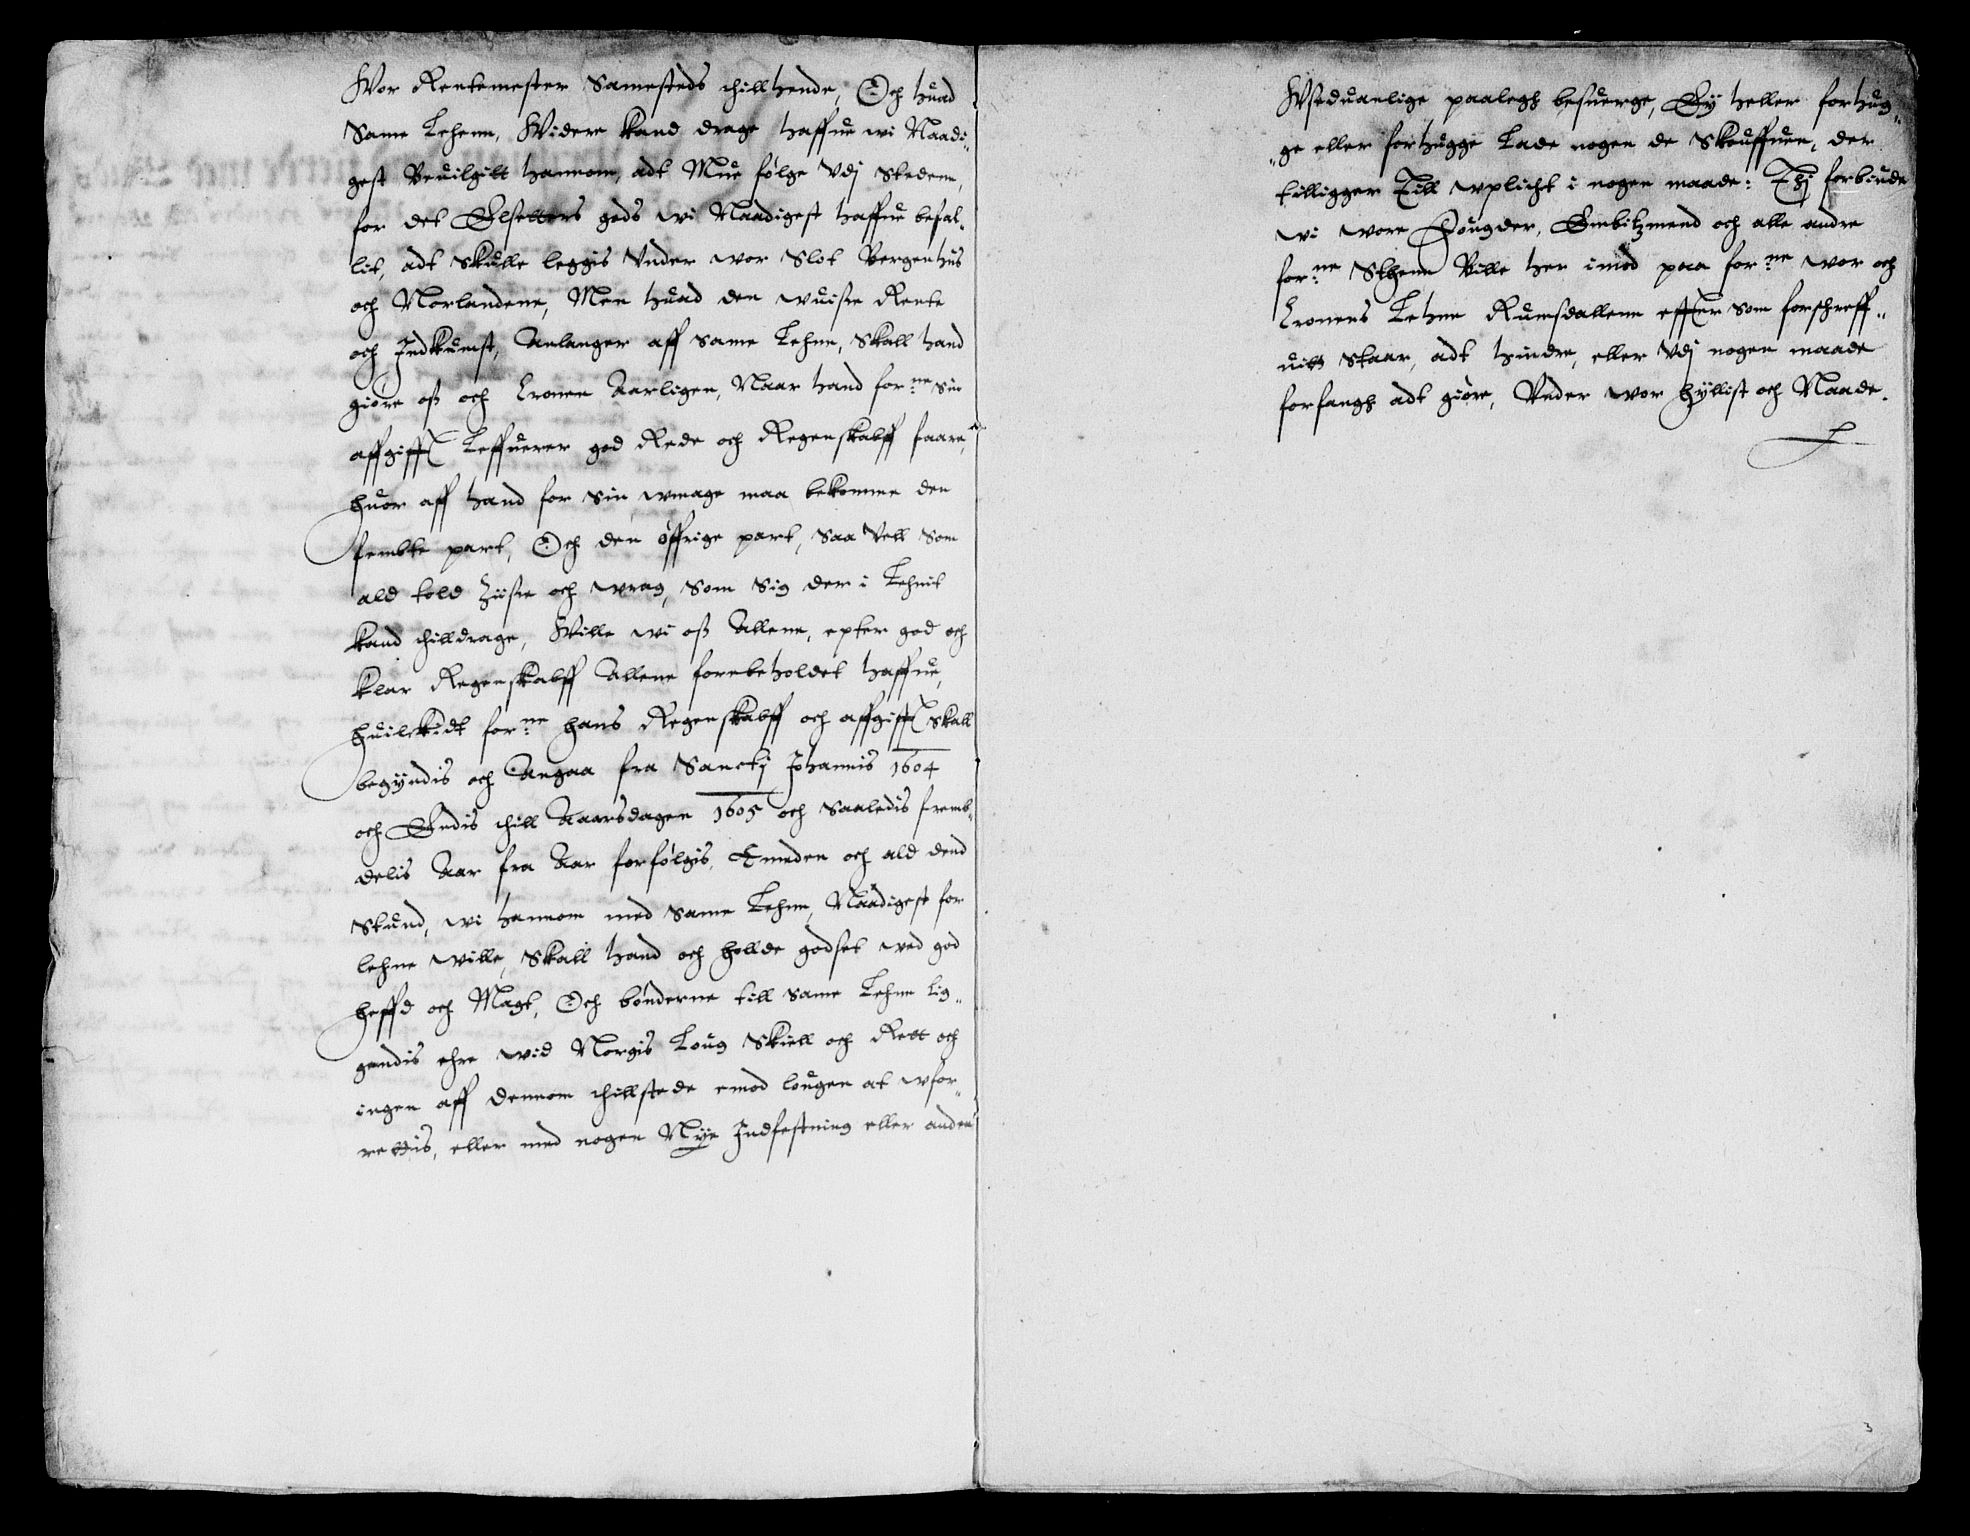 Wor Rentemester Samesteds thill hende, Och huad
Same Lehenn, Widere kand drage haffue wi Naadi„
gest Beuilgitt hannom, adt Mue følge Vdj Stedenn,
for det Elsetters gods wi Naadigest haffue befal„
lit, adt Skulle leggis Vnder wor Slot Bergenhus
och Norlandene, Men huad den wuisse Rente
och Indkumst, Anlanger aff same Lehnn, Skall hand
giøre oss och Cronen Aarligen, Naar hand forne Sin
affgifft Leffuerer god Rede och Regenskabff faare,
huor aff hand for Sin wmage maa bekomme den
fembte part, Och den øffrige part, Saa Vell Som
ald told Zisse och wrag, Som Sig der i Lehnit
kand thilldrage, Wille wi oss Allene, epter god och
klar Regenskabff Allene forebeholdet haffue,
huilckidt forne hans Regenskabff och affgifft Skall
begyndis och Angaa fra Sanctj Johannis 1604
och Endis thill Aarsdagen 1605 och Saaledis fremb„
delis Aar fra Aar forfølgis, Emeden och ald dend
Stund, wi hannom med Same Lehnn, Naadigest for
lehne wille, Skall hand och hollde godset wed god
heffd och Magt, Och bønderne till Same Lehnn lig„
gendis ehre wid Norgis Loug Skiell och Rett och
ingen aff dennom thillstede emod lougen at wfor„
rettis, eller med nogen Nye Indfestning eller anden
Wseduanlige paalegh besuerge, Ey heller forhug„
„ge eller forhugge Lade nogen de Skouffuen, der
tilligger Till wplicht i nogen maade: Thj forbiude
wi wore Fougder, Embitzmend och alle andre
forne Sthenn Bille her imod paa forne wor och
Cronens Lehnn Rumsdallenn effter som forschreff„
uitt Staar, adt hindre, eller Vdj nogen maade
forfangh adt giøre, Vnder wor hyllist och Naade.
3